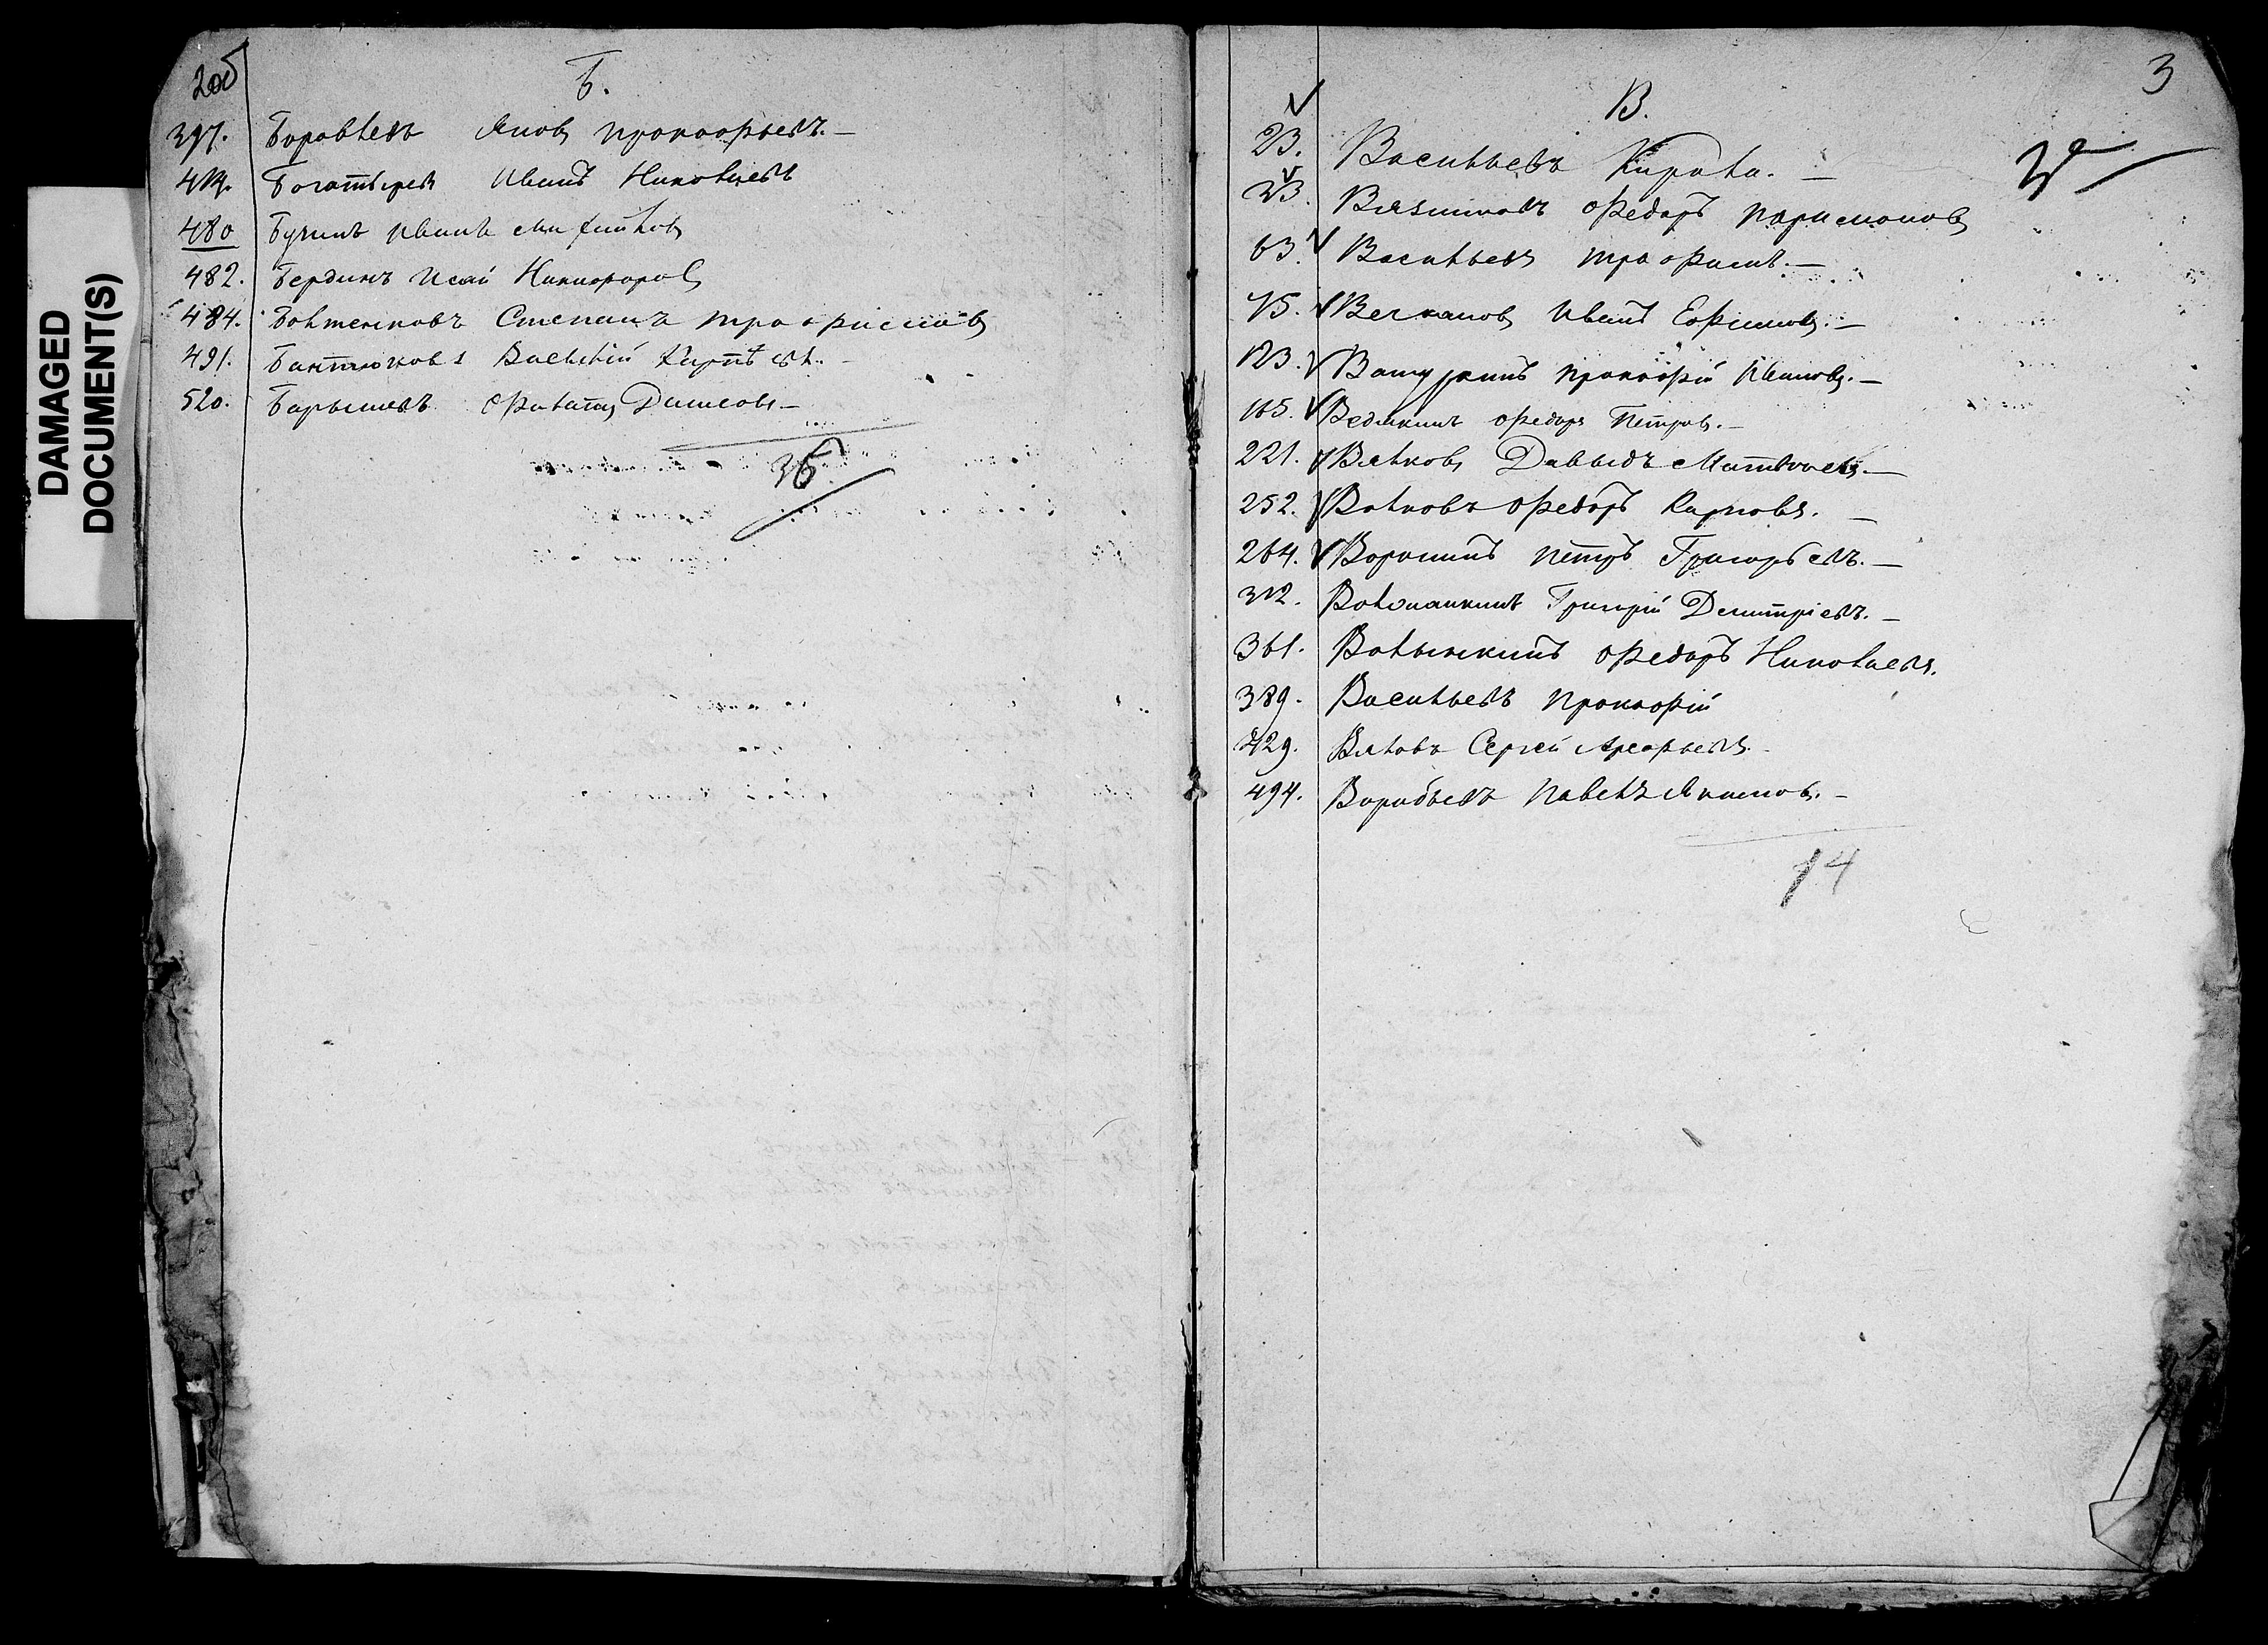 DAMAGED
DOCUMENT(S)
2об
Б.
397. Боровлевъ Яковъ Прокофьевъ. —
414. Богатыревъ Иванъ Николаевъ
480 Бучинъ Иванъ
482. Бердинъ Исай Никифоровъ
484. Болтенковъ Степанъ Трофимовъ
491. Бахтюковъ Василій Карпѣевъ. —
520. Барышевъ Филатъ Денисовъ —
36.
3
В.
23. Васильевъ Кирила. —
33. Вязниковъ Федоръ Парамоновъ
63. Васильевъ Трофимъ. —
75. Вечкановъ Иванъ Ефимовъ. —
123. Прокофій Ивановъ. —
165. Ведякинъ Федоръ Петровъ. —
221. Вялковъ Давыдъ Матвѣевъ. —
252. Волковъ Федоръ Карповъ. —
264. Воронинъ Петръ Григорьевъ. —
312. Григорій Дмитріевъ. —
361. Волынкинъ Федоръ Николаевъ.
389. Васильевъ Прокофій
429. Вяловъ Сергей Арефьевъ. —
494. Воробьевъ Павелъ Якимовъ. —
14